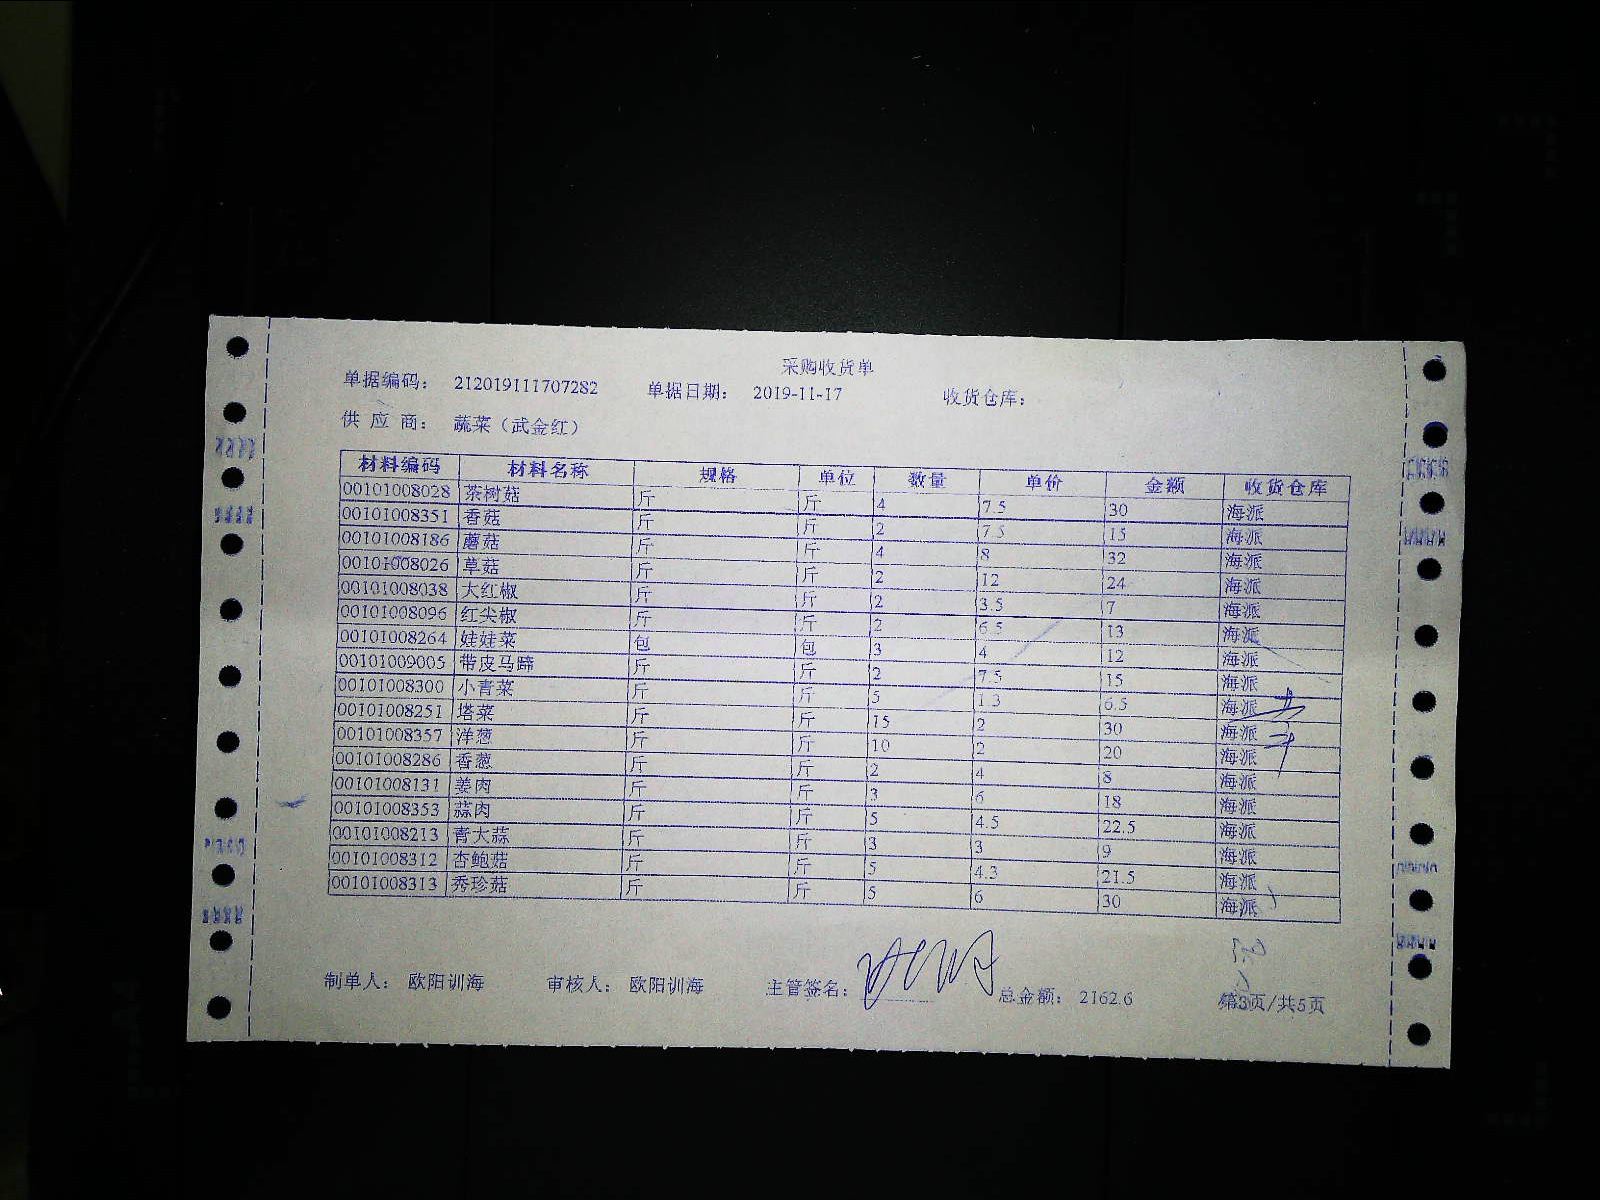 采购收货单
单据编码： 212019111707282 单据日期： 2019-11-17 收货仓库：
供 应 商： 蔬菜（武金红）
材料编码 材料名称 规格 单位 数量 单价 金额 收货仓库
00101008028 茶树菇 斤 斤 4 7.5 30 海派
00101008351 香菇 斤 斤 2 7.5 15 海派
00101008186 蘑菇 斤 斤 4 8 32 海派
00101008026 草菇 斤 斤 2 12 24 海派
00101008038 大红椒 斤 斤 2 3.5 7 海派
00101008096 红尖椒 斤 斤 2 6.5 13 海派
00101008264 娃娃菜 包 包 3 4 12 海派
00101009005 带皮马蹄 斤 斤 2 7.5 15 海派
00101008300 小青菜 斤 斤 5 1.3 6.5 海派
00101008251 塔菜 斤 斤 15 2 30 海派
00101008357 洋葱 斤 斤 10 2 20 海派
00101008286 香葱 斤 斤 2 4 8 海派
00101008131 姜肉 斤 斤 3 6 18 海派
00101008353 蒜肉 斤 斤 5 4.5 22.5 海派
00101008213 青大蒜 斤 斤 3 3 9 海派
00101008312 杏鲍菇 斤 斤 5 4.3 21.5 海派
00101008313 秀珍菇 斤 斤 5 6 30 海派
制单人： 欧阳训海 审核人： 欧阳训海 主管签名： 总金额： 2162.6 第3页/共5页